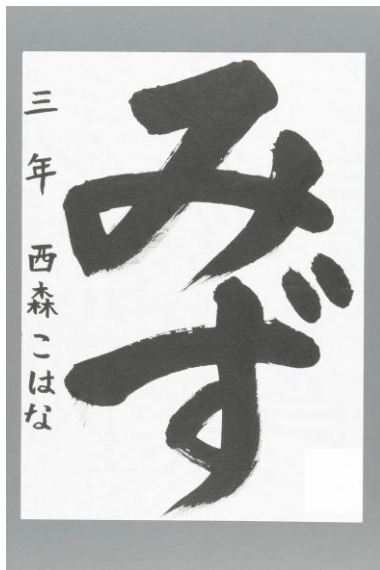 みず
三年 西森こはな